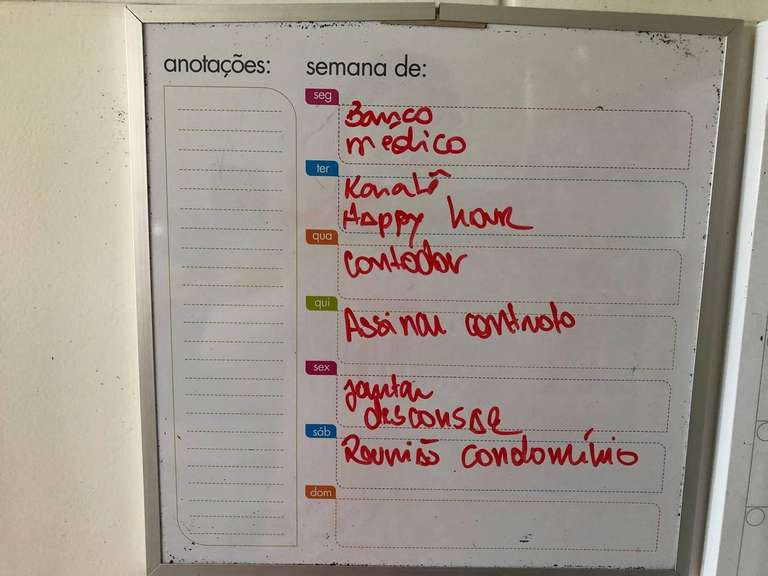 anotações:
semana de:
seg
Banco
médico
ter
Karatê
Happy hour
qua
contador
qui
Assinar contrato
sex
jantar
descansar
sáb
Reunião condomínio
dom